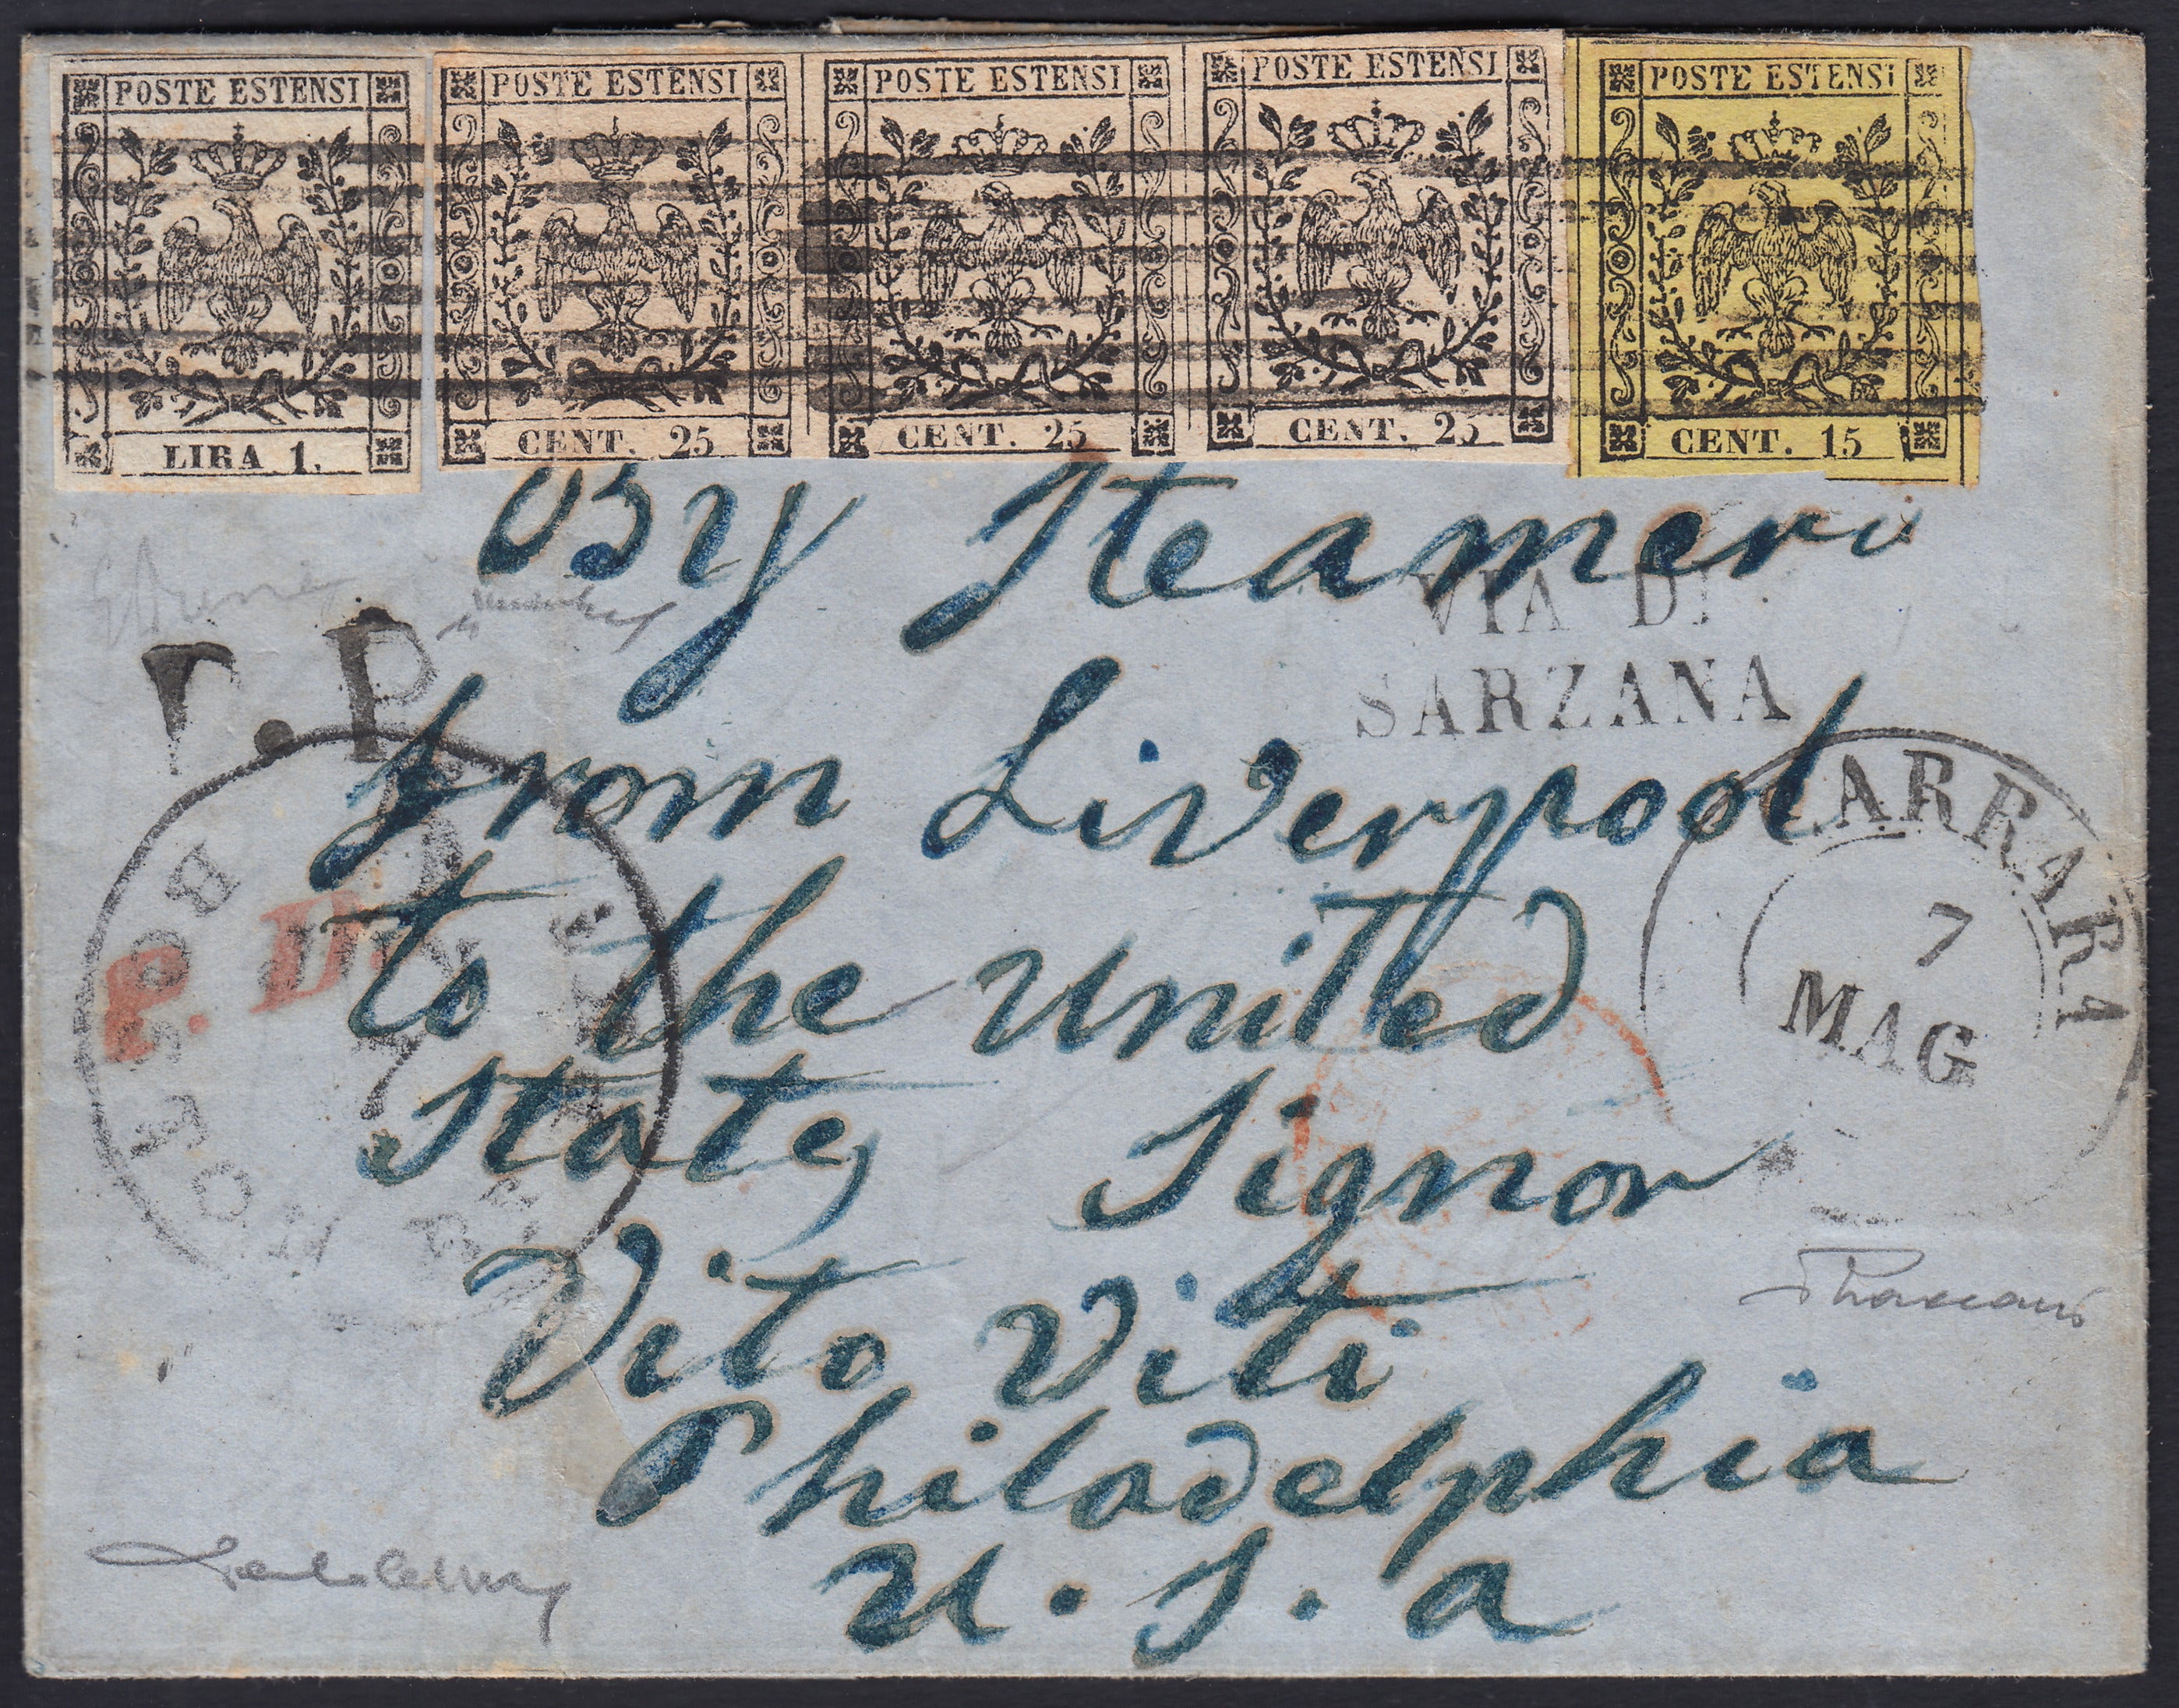 POSTE ESTENSI POSTE ESTENSI POSTE ESTENSI POSTE ESTENSI POSTE ESTENSI
LIRA 1. CENT. 25 CENT. 25 CENT. 25 CENT. 15
By Steamer
VIA DI
SARZANA
P.
from Liverpool
CARRARA
7
MAG
P. D.
to the united
States Signor
BOSTON BR. PKT.
Vito Viti
Philadelphia
U. S. a